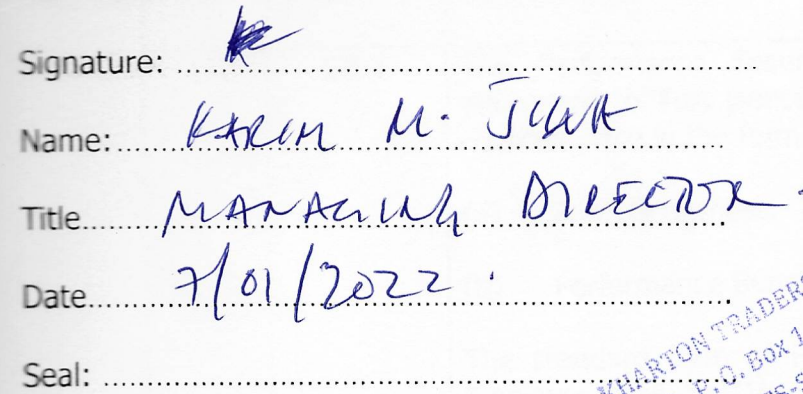 Signature: ....................
Name: KARIM M. JIWA
Title MANAGING DIRECTOR.
Date 7/01/2022.
Seal: ....................
KHARTON TRADERS
P. O. Box 1